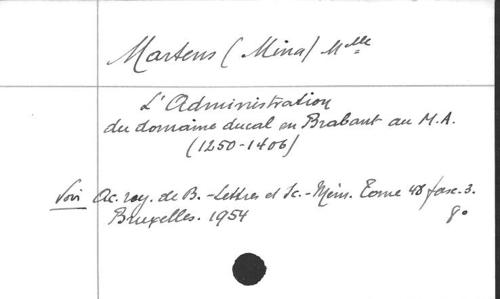 Martens (Mina) Mlle
L'Administration
du domaine ducal en Brabant au M.A.
(1250-1406)
Voir Ac. roy. de B. - Lettres et Sc. - Mém. Tome 48 fasc. 3.
Bruxelles. 1954 8°